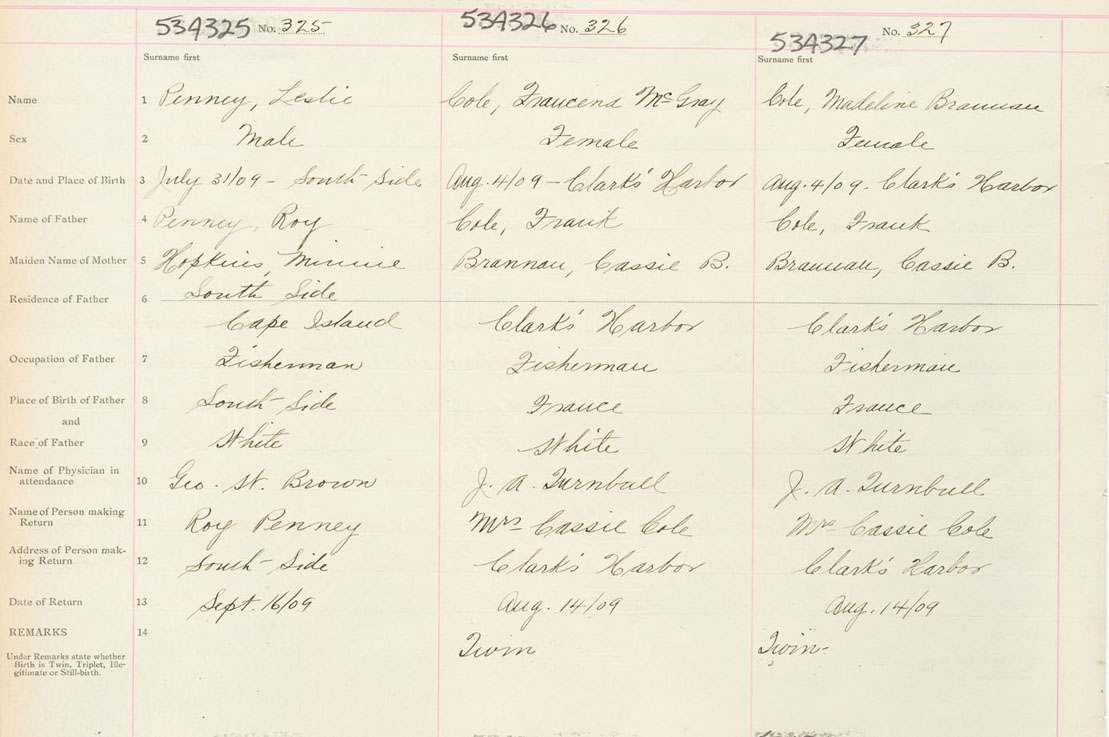 534325 No. 325 534326 No. 326 534327 No. 327
Surname first Surname first Surname first
Name 1 Penney, Leslie Cole, Francena McGray Cole, Madeline Brannan
Sex 2 Male Female Female
Date and Place of Birth 3 July 31/09 - South Side Aug. 4/09 - Clark's Harbor Aug. 4/09 - Clark's Harbor
Name of Father 4 Penney, Roy Cole, Frank Cole, Frank
Maiden Name of Mother 5 Hopkins, Minnie Brannan, Cassie B. Brannan, Cassie B.
Residence of Father 6 South Side
Cape Island Clark's Harbor Clark's Harbor
Occupation of Father 7 Fisherman Fisherman Fisherman
Place of Birth of Father 8 South Side France France
and
Race of Father 9 White White White
Name of Physician in
attendance 10 Geo. W. Brown J. A. Turnbull J. A. Turnbull
Name of Person making
Return 11 Roy Penney Mrs Cassie Cole Mrs Cassie Cole
Address of Person mak-
ing Return 12 South Side Clark's Harbor Clark's Harbor
Date of Return 13 Sept. 16/09 Aug. 14/09 Aug. 14/09
REMARKS 14 Twin Twin-
Under Remarks state whether
Birth is Twin, Triplet, Ille-
gitimate or Still-birth.